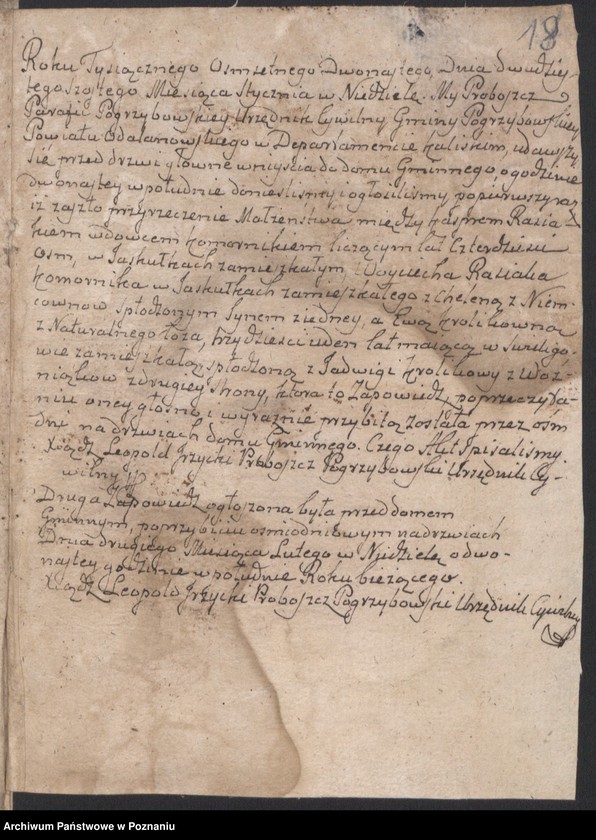 18
Roku Tysiącznego Osmsetnego Dwonastego, Dnia dwudzies-
tego szostego Miesiąca Stycznia w Niedzielę. My Proboszcz
Parafii Pogrzybowskiey Urzędnik Cywilny Gminy Pogrzybowskiey
Powiatu Odalanowskiego w Departamencie Kaliskim, udawszy
się przed drzwi głowne wniyscia do domu Gminnego, o godzinie
dwonastey w południe donieslismy i ogłosilismy, po pierwszy raz
iż zaszło przyrzeczenie Małzenstwa między Kasprem Rasia-
kiem wdowcem komornikiem liczącym lat Czterdziesci
osm, w Jaskułkach zamieszkałym, Woyciecha Rasiaka
komornika w Jaskułkach zamieszkałego z Heleną z Niem-
cownow spłodzonym Synem z iedney, a Ewą Krolikowną
z Naturalnego łoza, trzydziesci ieden lat maiącą w Sweligo-
wie zamieszkałą spłodzoną z Jadwigi Krolikowy z Woz-
niakow z drugiey strony, ktora to Zapowiedz po przeczyta-
niu oney głosno i wyraznie przybitą została przez osm
dni na drzwiach domu Gminnego. Czego Akt Spisalismy.
Xiądz Leopold Jrzycki Proboszcz Pogrzybowski Urzędnik Cy-
wilny
Druga Zapowiedz ogłoszona była przed domem
Gminnym, po przybiciu osmiodniowym na drzwiach
Dnia drugiego Miesiąca Lutego w Niedzielę o dwo-
nastey godzinie w południe Roku bieżącego.
Xiądz Leopold Jrzycki Proboszcz Pogrzybowski Urzędnik Cywilny
Archiwum Państwowe w Poznaniu